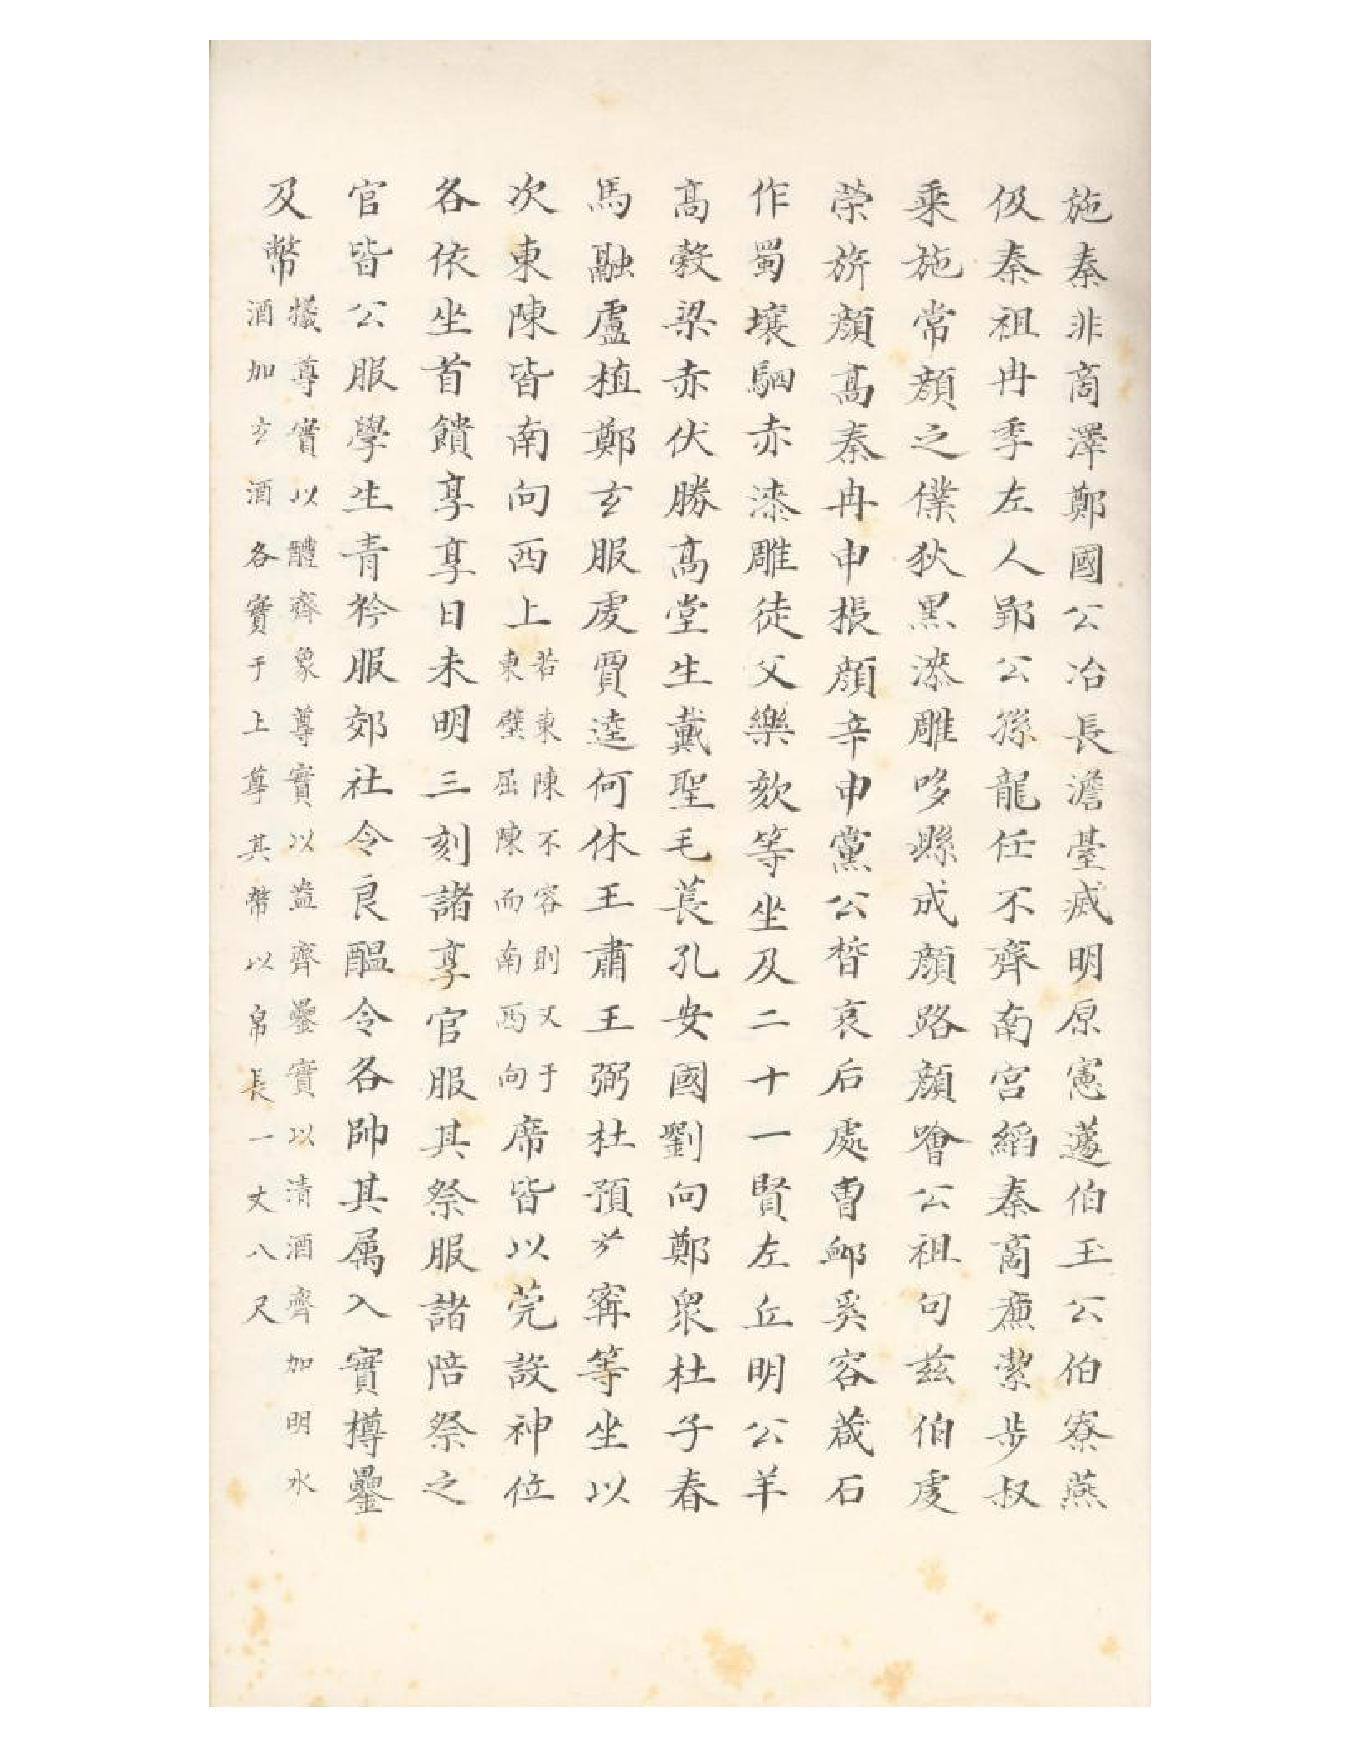 施秦非商澤鄭國公冶長澹臺滅明原憲蘧伯玉公伯寮燕
伋秦祖冉季左人郢公孫龍任不齊南宮縚秦商廉潔步叔
乘施常顏之僕狄黑漆雕哆縣成顏路顏噲公祖句茲伯虔
榮旂顏髙秦冉申棖顏辛申黨公晳哀后處曹䘏奚容蒧石
作蜀壤駟赤漆雕徒父樂欬等坐及二十一賢左丘明公羊
髙榖梁赤伏勝髙堂生戴聖毛萇孔安國劉向鄭衆杜子春
馬融盧植鄭玄服虔賈逵何休王肅王弼杜預范寗等坐以
次東陳皆南向西上若東陳不容則又于東壁屈陳而南西向席皆以莞設神位
各依坐首饋享享日未明三刻諸享官服其祭服諸陪祭之
官皆公服學生青衿服郊社令良醖令各帥其属入實樽罍
及幣犧尊實以醴齊象尊實以盎齊罍實以清酒齊加明水酒加玄酒各實于上尊其幣以帛長一丈八尺